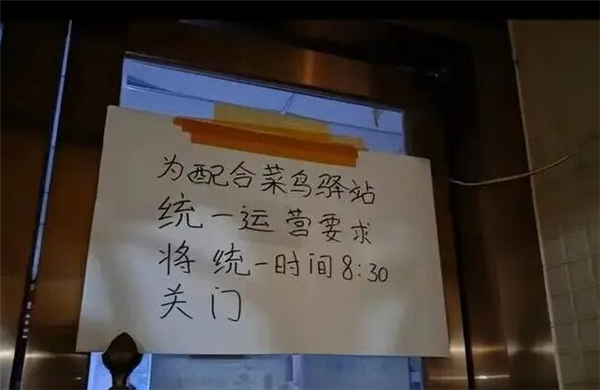 为配合菜鸟驿站
统一运营要求
将统一时间8:30
关门